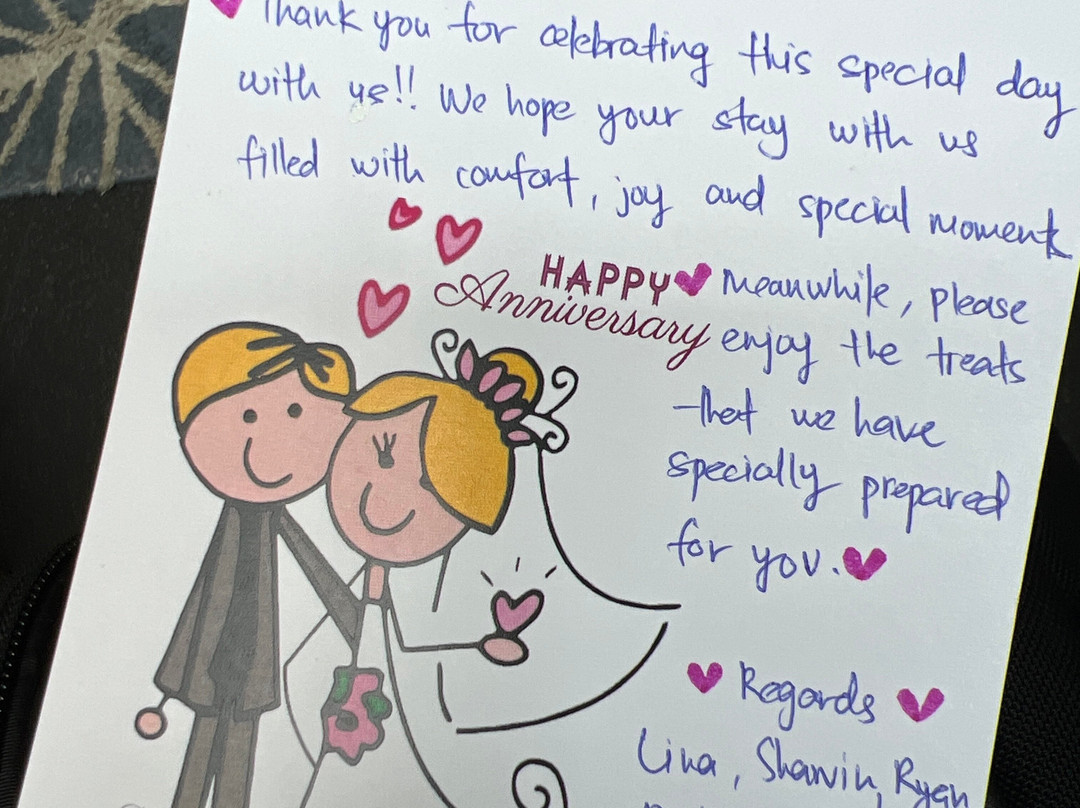 Thank you for celebrating this special day
with us!! We hope your stay with us
filled with comfort, joy and special moment
HAPPY
Anniversary
Meanwhile, please
enjoy the treats
that we have
specially prepared
for you.
Regards
Lina, Sharvin, Ryan